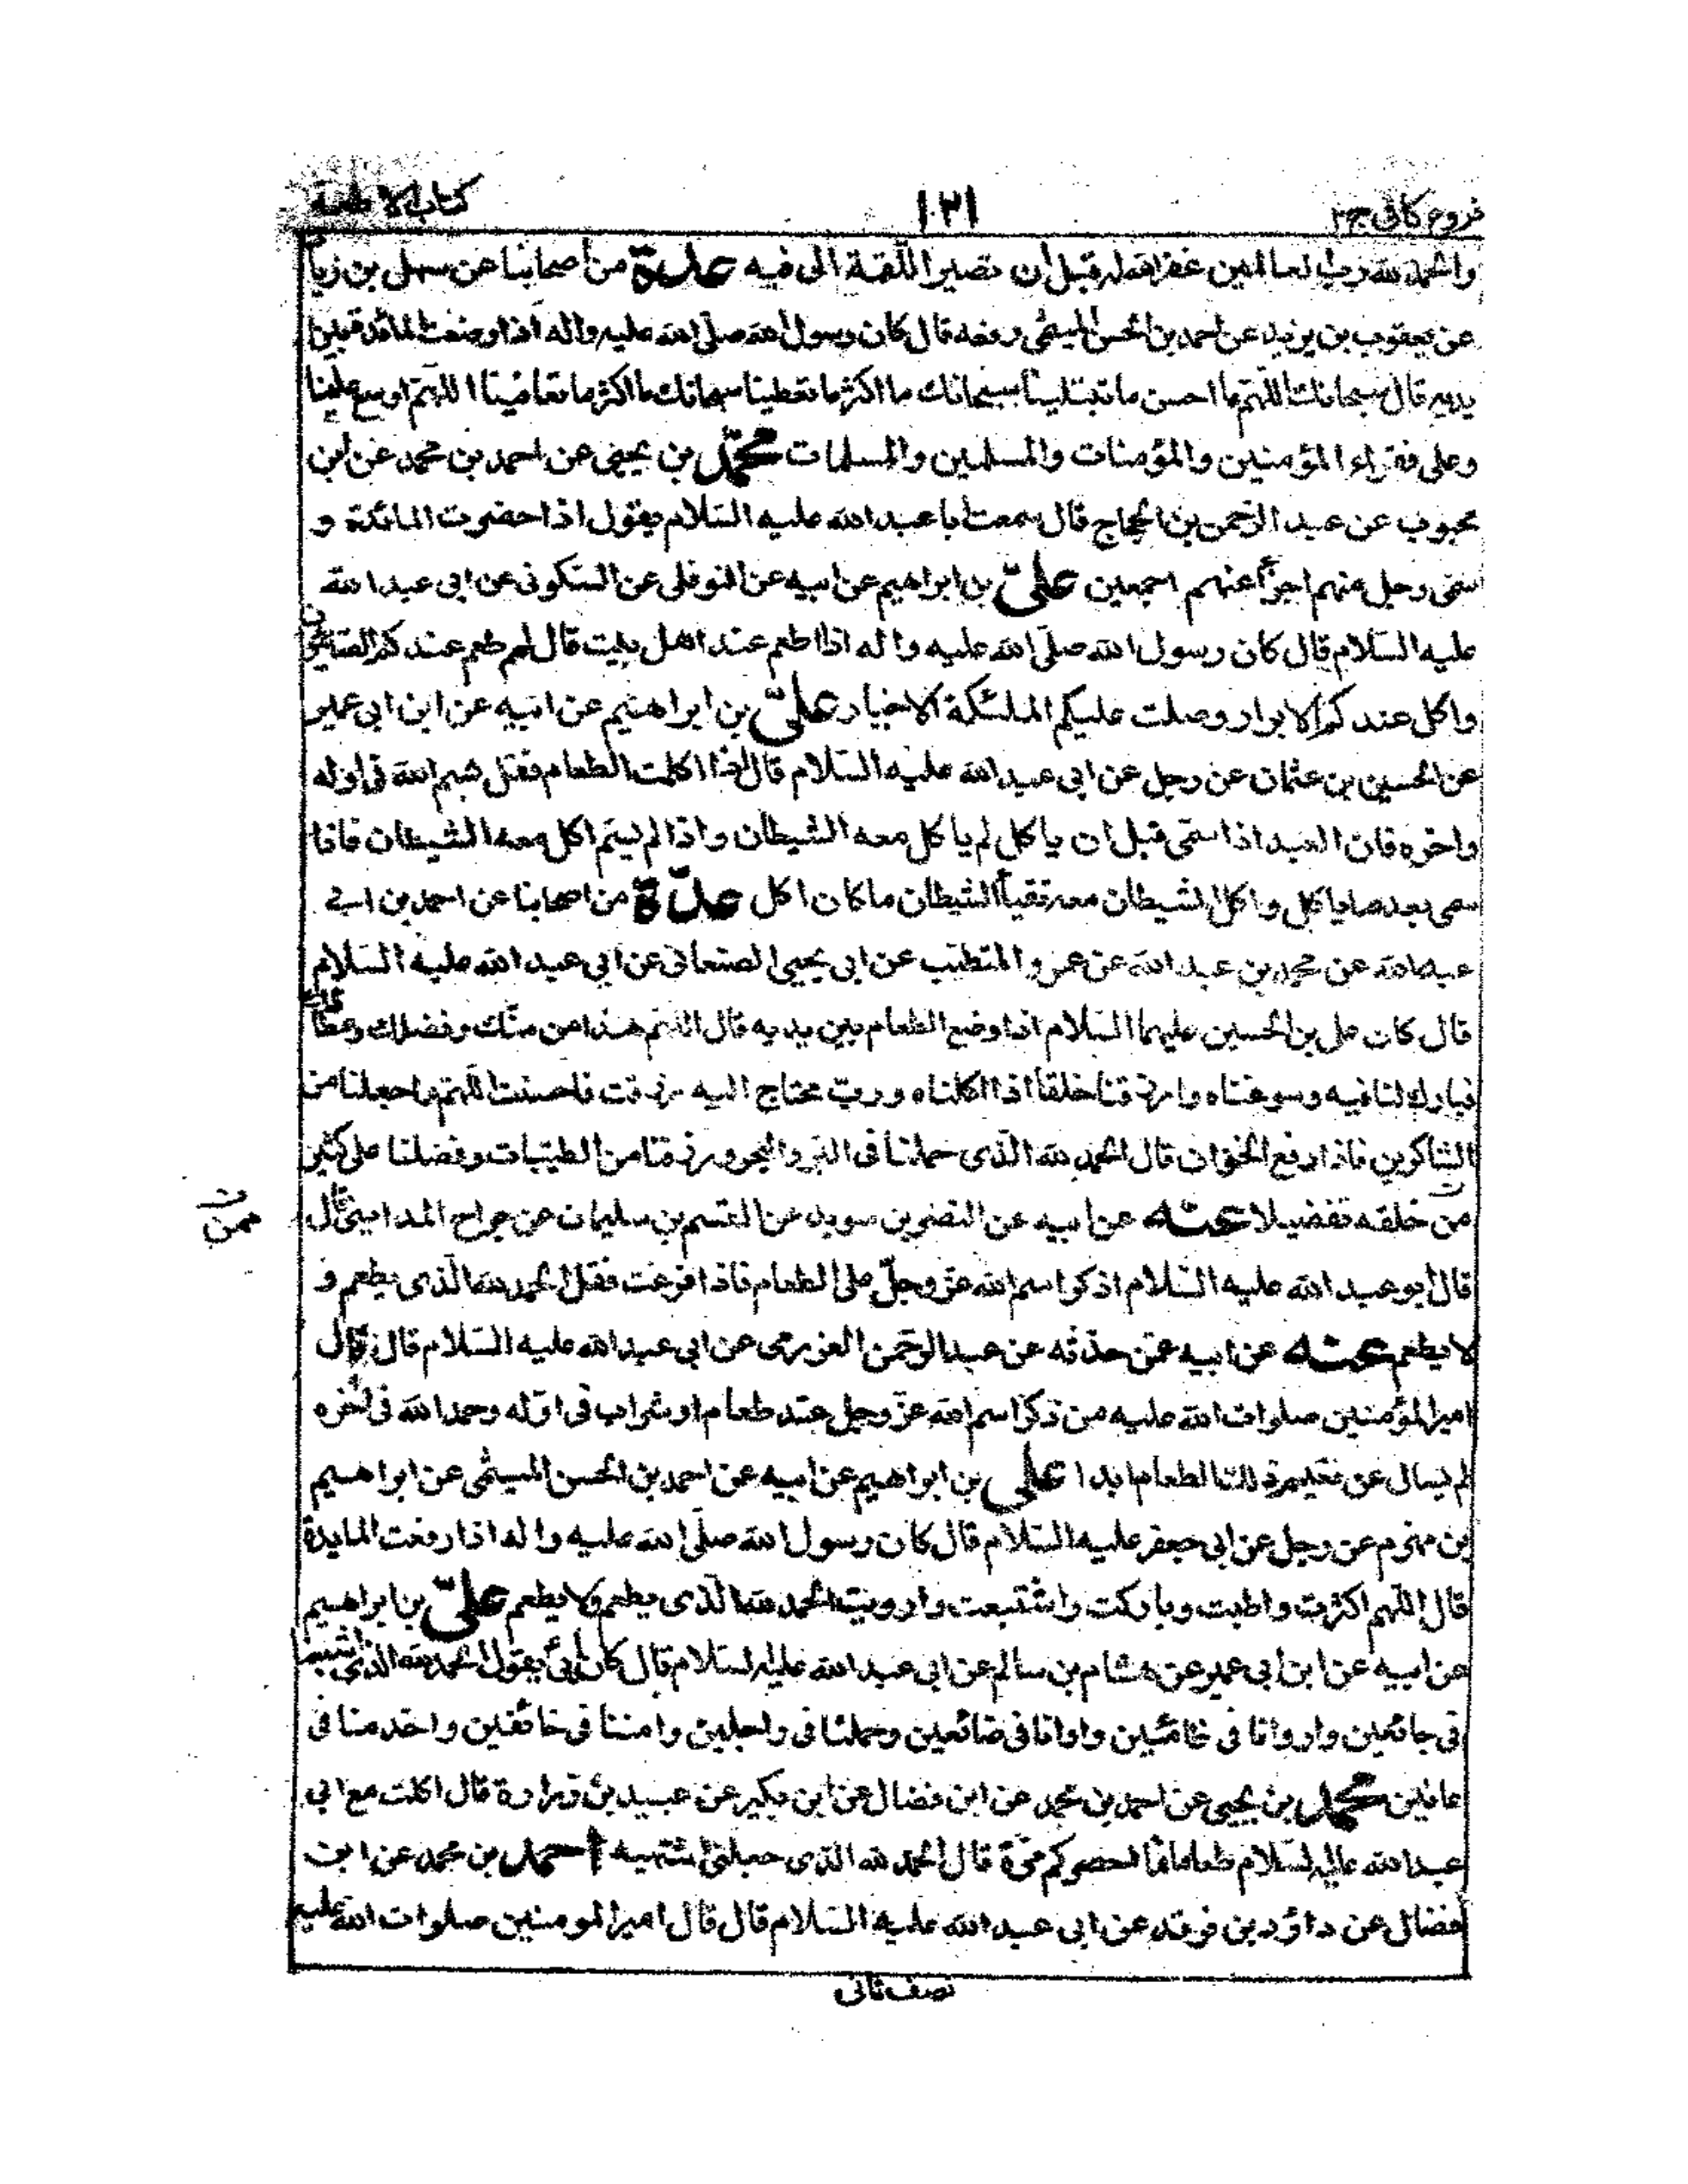 فروع كافى ج٢ ١٠٢١ كتاب الاطعمة
والحمد لله رب العالمين غفر الله له قبل ان تصير اللقمة الى فيه عدة من أصحابنا عن سهل بن زياد
عن يعقوب بن يزيد عن احمد بن الحسن الميثمى رفعه قال كان رسول الله صلى الله عليه واله اذا وضعت المائدة بين
يديه قال سبحانك اللهم ما احسن ما تبتلينا سبحانك ما اكثر ما تعطينا سبحانك ما اكثر ما تعافينا اللهم اوسع علينا
وعلى فقراء المؤمنين والمؤمنات والمسلمين والمسلمات محمد بن يحيى عن احمد بن محمد عن ابن
محبوب عن عبد الرحمن بن الحجاج قال سمعت ابا عبد الله عليه السلام يقول اذا حضرت المائدة و
سمى رجل منهم اجزأ عنهم اجمعين علىّ بن ابراهيم عن ابيه عن النوفلى عن السكونى عن ابى عبد الله
عليه السلام قال كان رسول الله صلى الله عليه واله اذا طعم عند اهل بيت قال لهم طعم عندكم الصائمون
واكل عندكم الابرار وصلت عليكم الملئكة الاخيار علىّ بن ابراهيم عن ابيه عن ابن ابى عمير
عن الحسين بن عثمان عن رجل عن ابى عبد الله عليه السلام قال اذا اكلت الطعام فقل بسم الله فى اوله
واخره فان العبد اذا سمى قبل ان ياكل لم ياكل معه الشيطان واذا لم يسم اكل معه الشيطان فاذا
سمى بعد ما ياكل واكل الشيطان معه تقيأ الشيطان ما كان اكل عدّة من اصحابنا عن احمد بن ابى
عبد الله عن محمد بن عبد الله عن عمرو المتطبب عن ابى يحيى الصنعانى عن ابى عبد الله عليه السلام
قال كان على بن الحسين عليهما السلام اذا وضع الطعام بين يديه قال اللهم هذا من منّك وفضلك وعطائك
فبارك لنا فيه وسوغناه وارزقنا خلفا اذا اكلناه وربّ محتاج اليه رزقت فاحسنت اللهم واجعلنا من
الشاكرين فاذا رفع الخوان قال الحمد لله الذى حملنا فى البر والبحر ورزقنا من الطيبات وفضلنا على كثير
من خلقه تفضيلا عنه عن ابيه عن النضر بن سويد عن القسم بن سليمان عن جراح المداينى قال
ممن
قال ابو عبد الله عليه السلام اذكر اسم الله عز وجلّ على الطعام فاذا فرغت فقل الحمد لله الذى يطعم و
لا يطعم عنه عن ابيه عمّن حدّثه عن عبد الرحمن العزرمى عن ابى عبد الله عليه السلام قال قال
امير المؤمنين صلوات الله عليه من ذكر اسم الله عزّ وجل عند طعام او شراب فى اوّله وحمد الله فى اخره
لم يسال عن نعيم ذلك الطعام ابدا على بن ابراهيم عن ابيه عن احمد بن الحسن الميثمى عن ابراهيم
بن مهزم عن رجل عن ابى جعفر عليه السلام قال كان رسول الله صلّى الله عليه واله اذا رفعت المايدة
قال اللهم اكثرت واطبت وباركت واشبعت وارويت الحمد لله الذى يطعم ولا يطعم علىّ بن ابراهيم
عن ابيه عن ابن ابى عمير عن هشام بن سالم عن ابى عبد الله عليه السلام قال كان ابى يقول الحمد لله الذى اشبعنا
فى جائعين واروانا فى ظامئين واوانا فى ضائعين وحملنا فى راجلين وامننا فى خائفين واخدمنا فى
عانين محمد بن يحيى عن احمد بن محمد عن ابن فضال عن ابن بكير عن عبيد بن زرارة قال اكلت مع ابى
عبد الله عليه السلام طعاما فما احصى كم مرّة قال الحمد لله الذى جعلنى اشتهيه احمد بن محمد عن ابن
فضال عن داؤد بن فرقد عن ابى عبد الله عليه السلام قال قال امير المومنين صلوات الله عليه
نصف ثانى